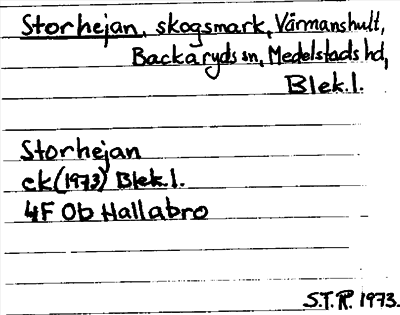 Storhejan, skogsmark, Värmanshult,
Backaryds sn, Medelstads hd,
Blek.l.
Storhejan
ek (1973) Blek.l.
4F Ob Hallabro
S.T.R. 1973.